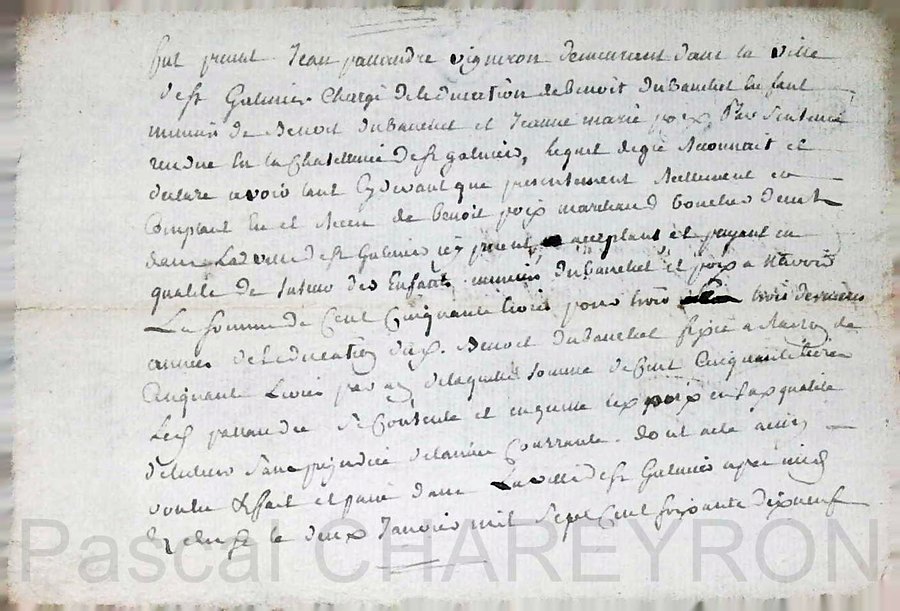 fut present Jean passandre vigneron demeurant dans la ville
de St Galmier Chargé de leducation de Benoit dubanchet Enfant
mineur de Benoit dubanchet et Jeanne marie poix, Par Sentence
rendue En la Chatellenie de St galmier, lequel de gré Reconnait et
declare avoir tant Cydevant que presentement Reellement en
Comptant Eu et Receu de benoit poix marchand boucher demt
dans La ville de St Galmier icy present acceptant et payant en
qualité de tuteur des Enfants mineurs dubanchet et poix a scavoir
La somme de Cent Cinquante livres pour trois trois dernieres
années de leducation dud. Benoit dubanchet fixée a Raison de
Cinquante Livres par an de laquelle somme de Cent Cinquante livres
Led passandre se Contente et en quitte led poix en sa qualité
de tuteur sans prejudice de lannée Courrante. dont acte ainsy
voulu & fait et passé dans La ville de St Galmier apres midy
le deux Janvier mil Sept Cent soixante dix neuf
Pascal CHAREYRON